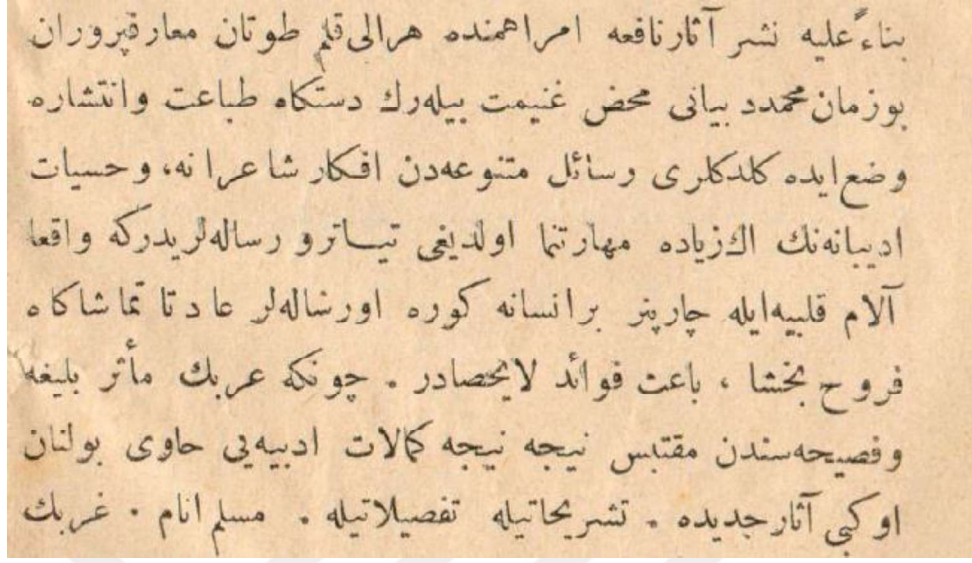 بناءً علیه نشر آثار نافعه امر اهمنده هر الی قلم طوتان معارفپروران
بو زمان مجدد بیانی محض غنیمت بیله‌رك دستكاه طباعت و انتشاره
وضع ایده كلدكلری رسائل متنوعه‌دن افكار شاعرانه، و حسیات
ادیبانه‌نك اك زیاده مهارتنما اولدیغی تیــاترو رساله‌لریدركه واقعا
آلام قلبیه ایله چارپنر بر انسانه كوره اورساله‌لر عادتا تماشاكاه
فروح بخشا ، باعث فوائد لایحصادر . چونكه عربك مأثر بلیغه
و فصیحه‌سندن مقتبس نیجه نیجه كمالات ادبیه‌یی حاوی بولنان
او كبی آثار جدیده . تشریحاتیله تفصیلاتیله . مسلم انام . غربك